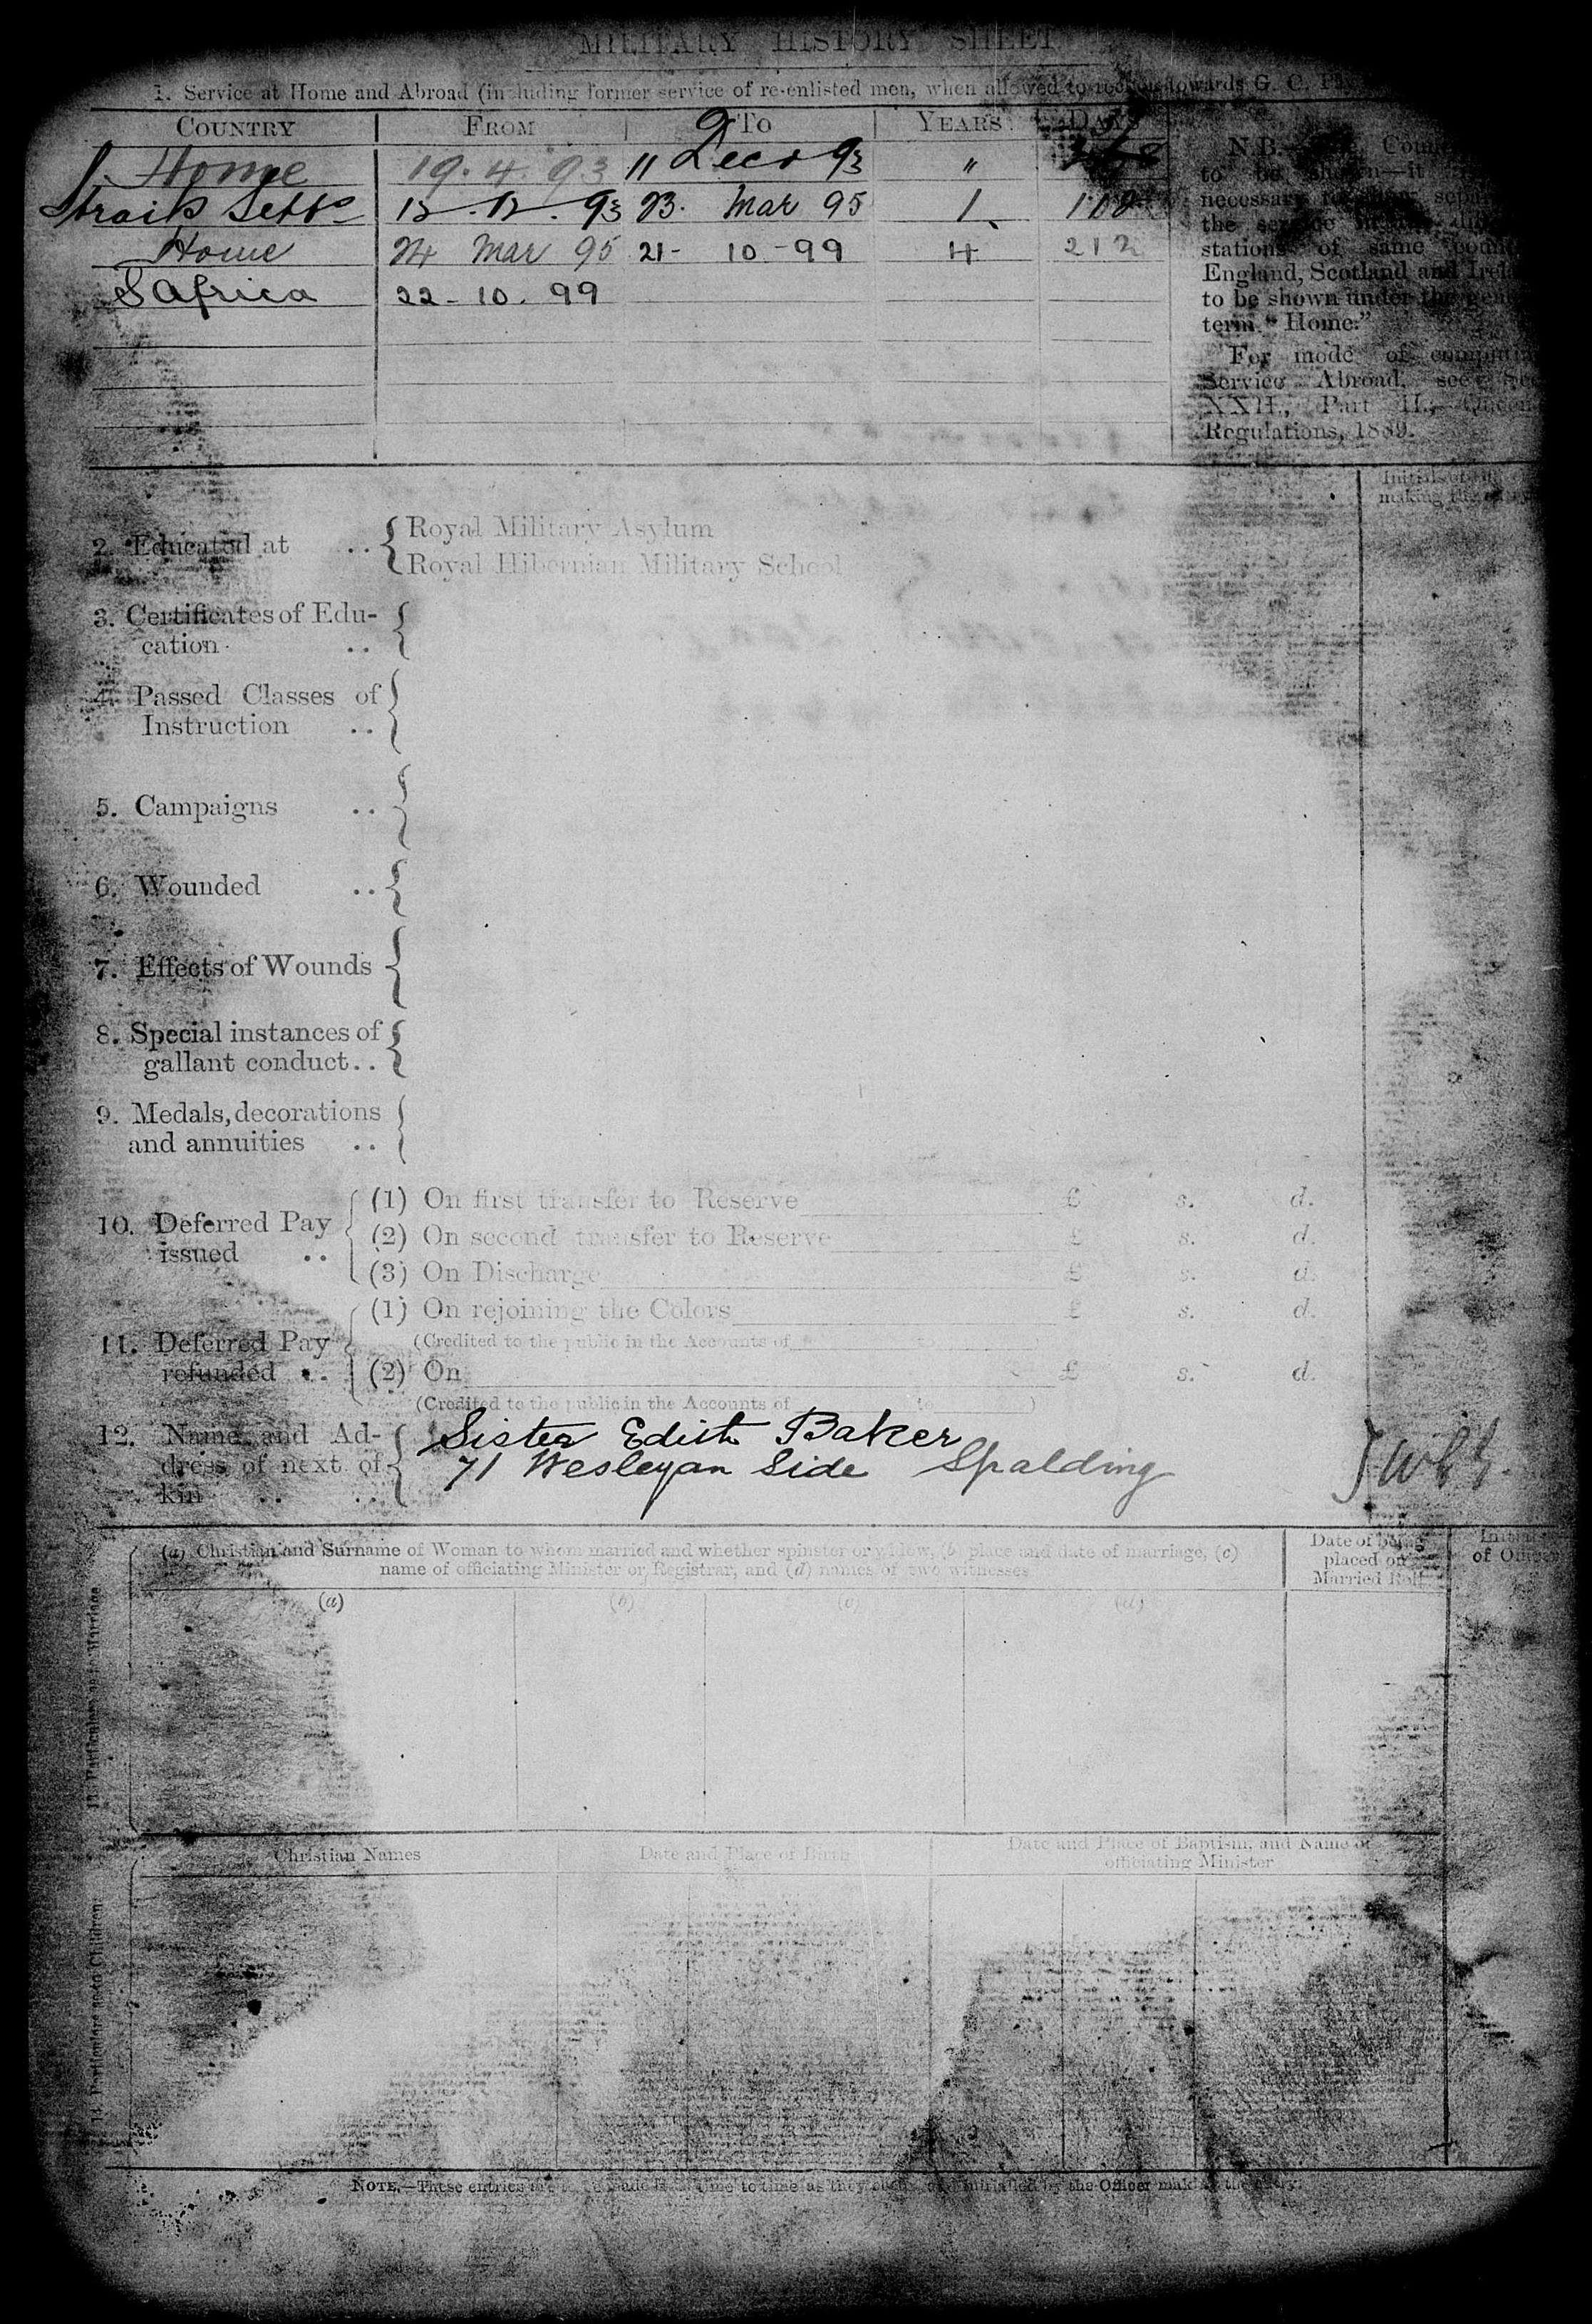 MILITARY HISTORY SHEET
1. Service at Home and Abroad (including former service of re-enlisted men, when allowed to reckon towards G. C. Pay
COUNTRY FROM TO YEARS DAYS
Home 19.4.93 11 Decr 93 "
Straits Setts 12.12.93 23. Mar 95 1
Home 24 Mar 95 21- 10-99 4 212
S Africa 22-10.99
N.B.
to be shown—it
necessary
the service
stations of same
England, Scotland and
to be shown under the
term "Home."
For mode of
Service Abroad, see
XXII., Part II.,
Regulations, 1889.
2. Educated at .. Royal Military Asylum
Royal Hibernian Military School
3. Certificates of Edu-
cation ..
4. Passed Classes of
Instruction ..
5. Campaigns ..
6. Wounded ..
7. Effects of Wounds
8. Special instances of
gallant conduct..
9. Medals, decorations
and annuities ..
10. Deferred Pay
issued ..
(1) On first transfer to Reserve £ s. d.
(2) On second transfer to Reserve £ s. d.
(3) On Discharge £ s. d.
11. Deferred Pay
refunded ..
(1) On rejoining the Colors £ s. d.
(Credited to the public in the Accounts of
(2) On £ s. d.
(Credited to the public in the Accounts of to )
12. Name and Ad-
dress of next of
kin .. ..
Sister Edith Baker
71 Wesleyan Side Spalding
13. Particulars as to Marriage
(a) Christian and Surname of Woman to whom married and whether spinster or widow, (b) place and date of marriage, (c)
name of officiating Minister or Registrar, and (d) names of two witnesses
Date of being
placed on
Married Roll
of
(a) (b) (c) (d)
14. Particulars as to Children
Christian Names Date and Place of Birth Date and Place of Baptism, and Name of
officiating Minister
NOTE.—These entries are to be made from time to time as they occur, and initialled by the Officer making the entry.